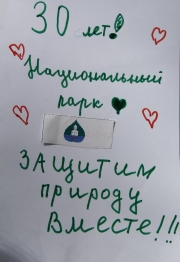 30 лет!
Национальный
парк
ЗАЩИТИМ
природу
Вместе!!!